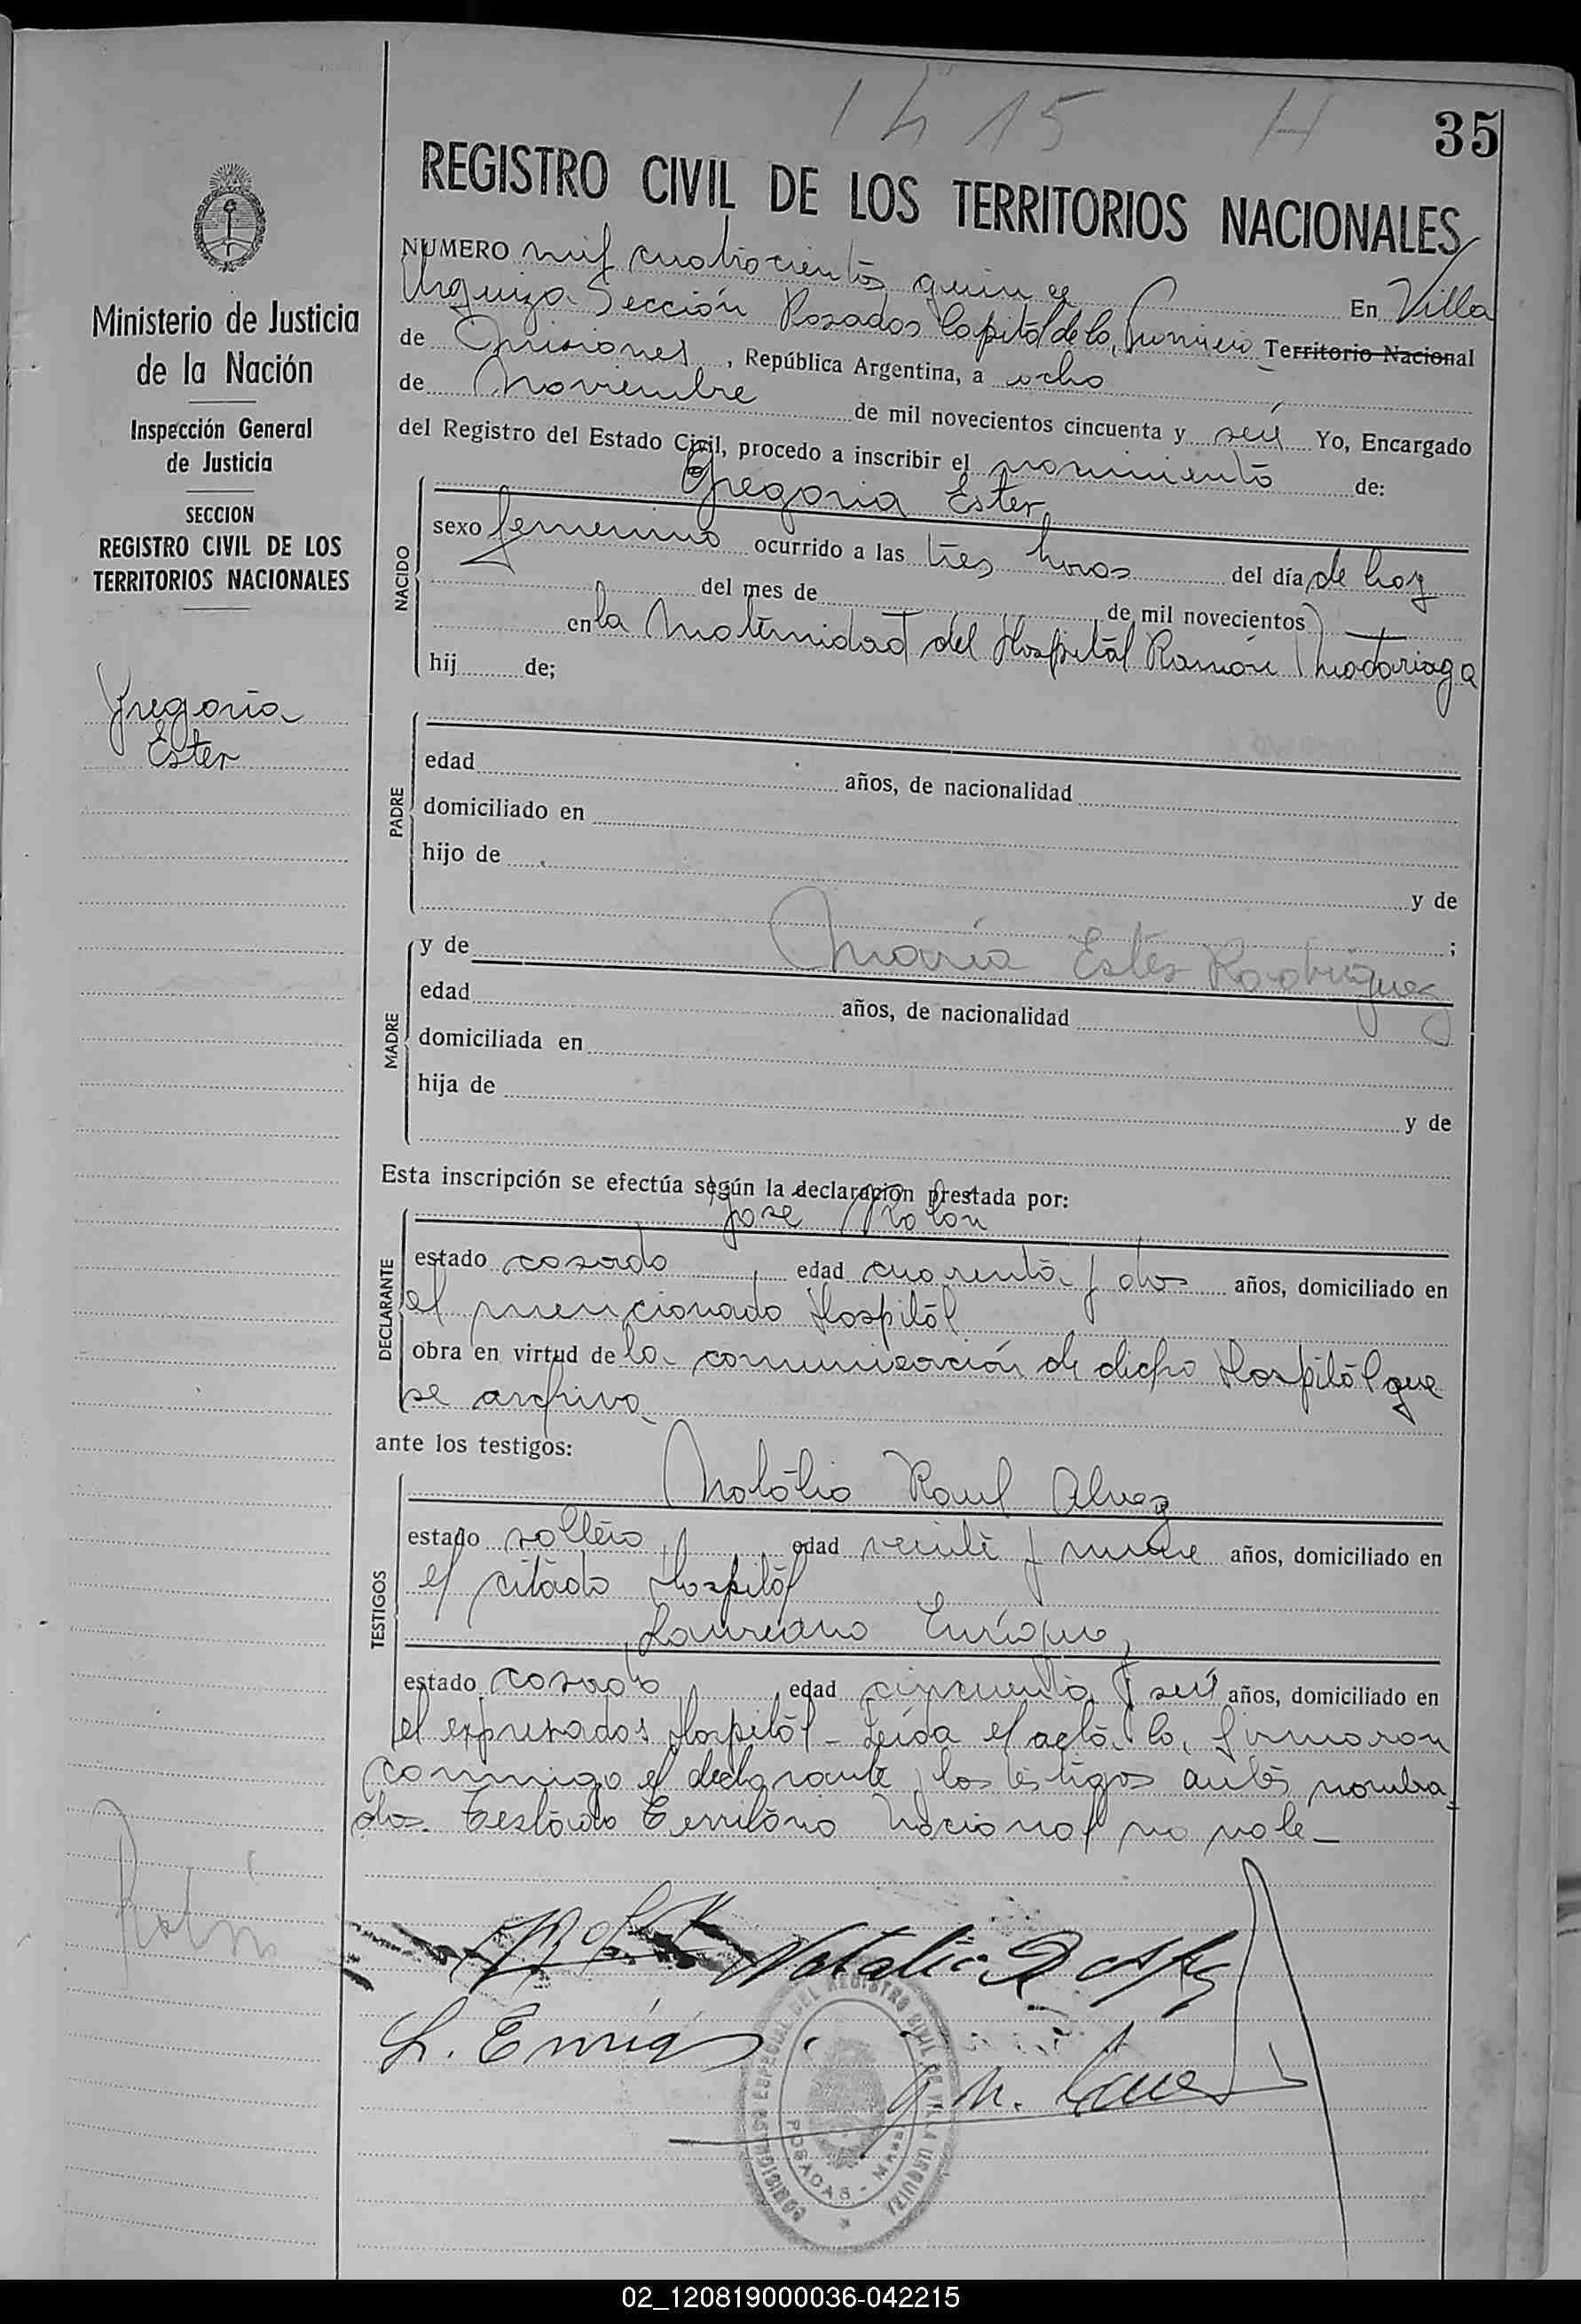 1415 H
35
REGISTRO CIVIL DE LOS TERRITORIOS NACIONALES
Ministerio de Justicia
de la Nación
Inspección General
de Justicia
SECCION
REGISTRO CIVIL DE LOS
TERRITORIOS NACIONALES
Gregoria
Ester
NUMERO mil cuatrocientos quince En Villa
Urquiza Sección Posadas Capital de la Provincia Territorio Nacional
de Misiones, República Argentina, a ocho
de Noviembre de mil novecientos cincuenta y seis Yo, Encargado
del Registro del Estado Civil, procedo a inscribir el nacimiento de:
Gregoria Ester
NACIDO
sexo femenino ocurrido a las tres horas del día de hoy
del mes de de mil novecientos
en la Maternidad del Hospital Ramón Madariaga
hij de;
PADRE
edad años, de nacionalidad
domiciliado en
hijo de
y de
;
MADRE
y de María Ester Rodriguez
edad años, de nacionalidad
domiciliada en
hija de
y de
Esta inscripción se efectúa según la declaración prestada por:
Jose Rolon
DECLARANTE
estado casado edad cuarenta y dos años, domiciliado en
el mencionado Hospital
obra en virtud de la comunicación de dicho Hospital que
se archiva
ante los testigos:
Natalio Raul Alvez
TESTIGOS
estado soltero edad veinte y nueve años, domiciliado en
el citado Hospital
Laureano Enrique,
estado casado edad cincuenta y seis años, domiciliado en
el expresados Hospital - Leída el acta la firmaron
conmigo el declarante y los testigos antes nombra
dos. Testado Territorio Nacional no vale -
Rolón
Natalio R
L.
COMISION ESPECIAL DEL REGISTRO CIVIL DE VILLA URQUIZA
POSADAS -
02_120819000036-042215